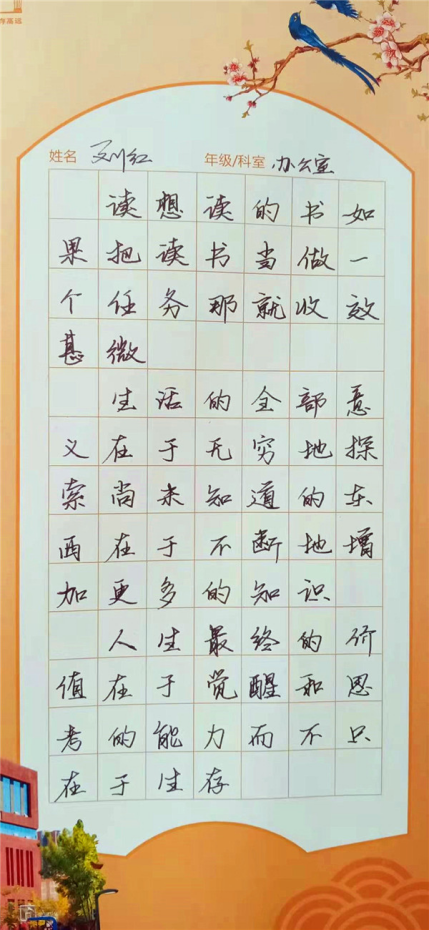 姓名 刘红 年级/科室 办公室
读想读的书如
果把读书当做一
个任务那就收效
甚微
生活的全部意
义在于无穷地探
索尚未知道的东
西在于不断地增
加更多的知识
人生最终的价
值在于觉醒和思
考的能力而不只
在于生存